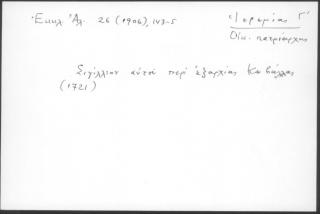 Ἐκκλ Ἀλ. 26 (1906), 143-5
Ἱερεμίας Γ΄
Οἰκ. πατριάρχης
Σιγίλλιον αὐτοῦ περὶ ἐξαρχίας Καβάλλας
(1721)